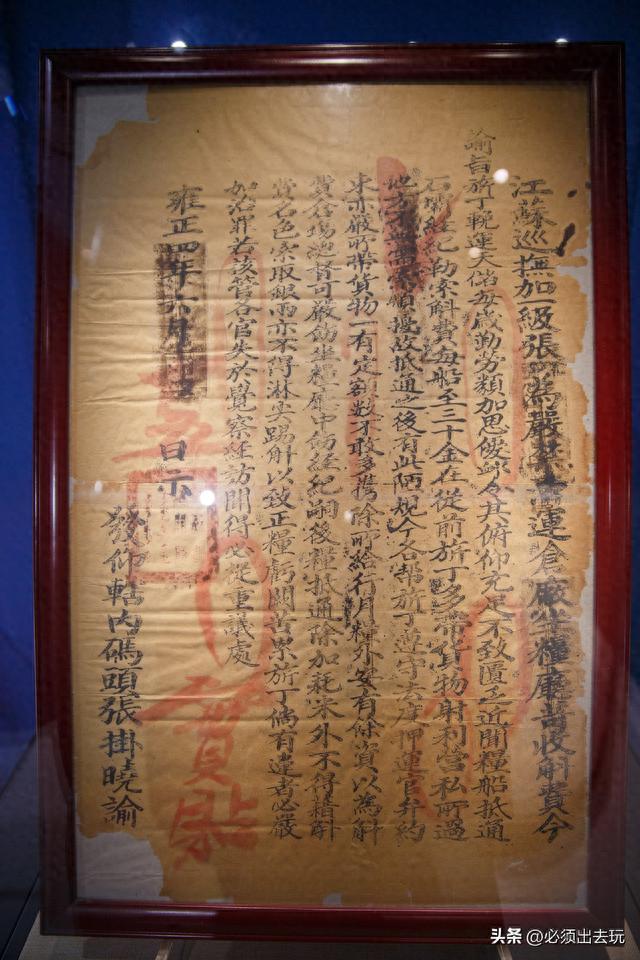 江蘇巡撫加一級張為嚴禁運倉廠坐糧廳苛收斛費今
諭旨旂丁輓運天儲每歲勤勞類加恩優卹令其俯仰充足不致匱乏近聞糧船抵通
石壩經紀勒索斛費每船至三十金在從前旂丁多帶貨物射利營私所過
地方不煩擾故抵通之後有此陋規今各幫旂丁遵守法度押運官弁約
束亦嚴所帶貨物一有定額數不敢多携除所給行月糧外安有餘資以為斛
費倉場總督可嚴飭坐糧廳中飭經紀嗣後糧抵通除加耗米外不得藉斛
費名色索取銀兩亦不得淋尖踢斛以致正糧虧闕苦累旂丁倘有違者必嚴
加治罪若該管各官失於覺察經訪聞得必從重議處
雍正四年六月日示
發仰轄內碼頭張掛曉諭
實貼
头条 @必须出去玩